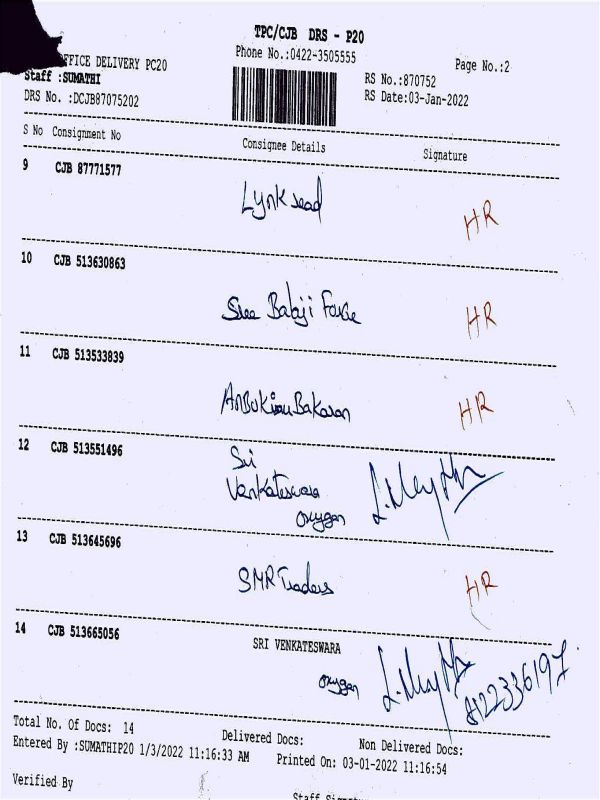 TPC/CJB DRS - P20
Phone No.:0422-3505555
Page No.:2
FFICE DELIVERY PC20
Staff :SUMATHI
RS No.:870752
DRS No. :DCJB87075202
RS Date:03-Jan-2022
S No Consignment No Consignee Details Signature
9 CJB 87771577
Lynk
HR
10 CJB 513630863
Sree Balaji
HR
11 CJB 513533839
HR
12 CJB 513551496
Sri
Venkateswara
oxygen
13 CJB 513645696
SMR Traders
HR
14 CJB 513665056
SRI VENKATESWARA
oxygen
8122336197
Total No. Of Docs: 14 Delivered Docs: Non Delivered Docs:
Entered By :SUMATHIP20 1/3/2022 11:16:33 AM Printed On: 03-01-2022 11:16:54
Verified By
Staff